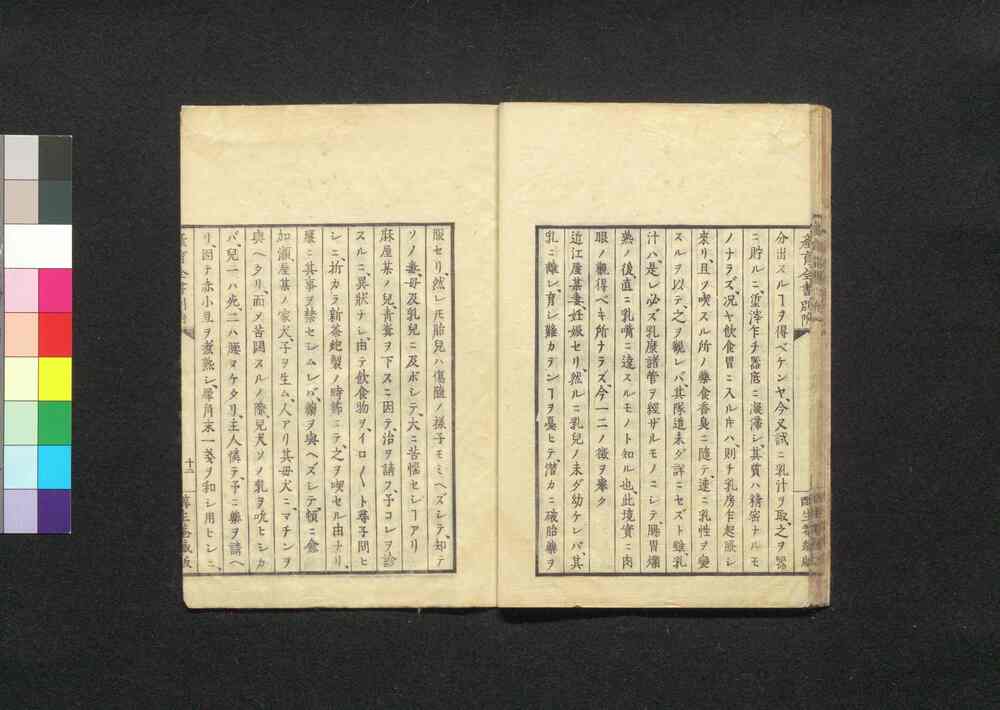 産育全書別附
分出スルヿヲ得ベケンヤ、今又試ニ乳汁ヲ取、之ヲ器
ニ貯ルニ、滓乍チ器底ニ凝滞シ、其質ハ精密ナルモ
ノナラズ、况ヤ飲食胃ニ入ル片ハ、則チ乳房乍起脹シ
来リ、且ヲ喫スル所ノ藥食香臭ニ随テ速ニ乳性ヲ變
スルヲ以テ、之ヲ観レバ、其隊道未ダ詳ニセズト雖、乳
汁ハ、是レ必ズ乳糜諸管ヲ經ザルモノニシテ、腸胃爛
熟ノ後直ニ乳嘴ニ達スルモノト知ル也、此境實ニ肉
眼ノ觀得ベキ所ナラズ、今一二ノ徴ヲ擧ク
近江屋某妻妊娠セリ、然ルニ乳兒ノ未ダ幼ケレバ、其
乳ニ離レ、育シ難カランヿヲ憂ヒテ、潜カニ破胎藥ヲ
服セリ、然レ𪜈胎兒ハ傷墮ノ様子モミヘズシテ、却テ
ソノ毒母及乳兒ニ及ボシテ、大ニ苦惱セシヿアリ
麻屋某ノ兒、青糞ヲ下スニ因テ、治ヲ請フ、予コレヲ診
スルニ、異狀ナシ、由テ飲食物ヲ、イロ〱ト尋子問ヒ
シニ、折カラ新茶製ノ時節ニテ、之ヲ喫セル由ナリ、
ニ其事ヲ禁セシムレバ、藥ヲ與ヘズシテ、頓ニ愈
加瀬屋某ノ家犬、子ヲ生ム、人アリ其母犬ニ、マチンヲ
與ヘタリ、而メ苦悶スルノ際、兒犬ソノ乳ヲ吮ヒシカ
バ、兒一ハ死、二ハ腰ヲケタリ、主人憐テ、予ニ藥ヲ請ヘ
リ、因テ赤小豆ヲ煮熟シ、犀角末一等ヲ和シ用ヒシニ、
十二